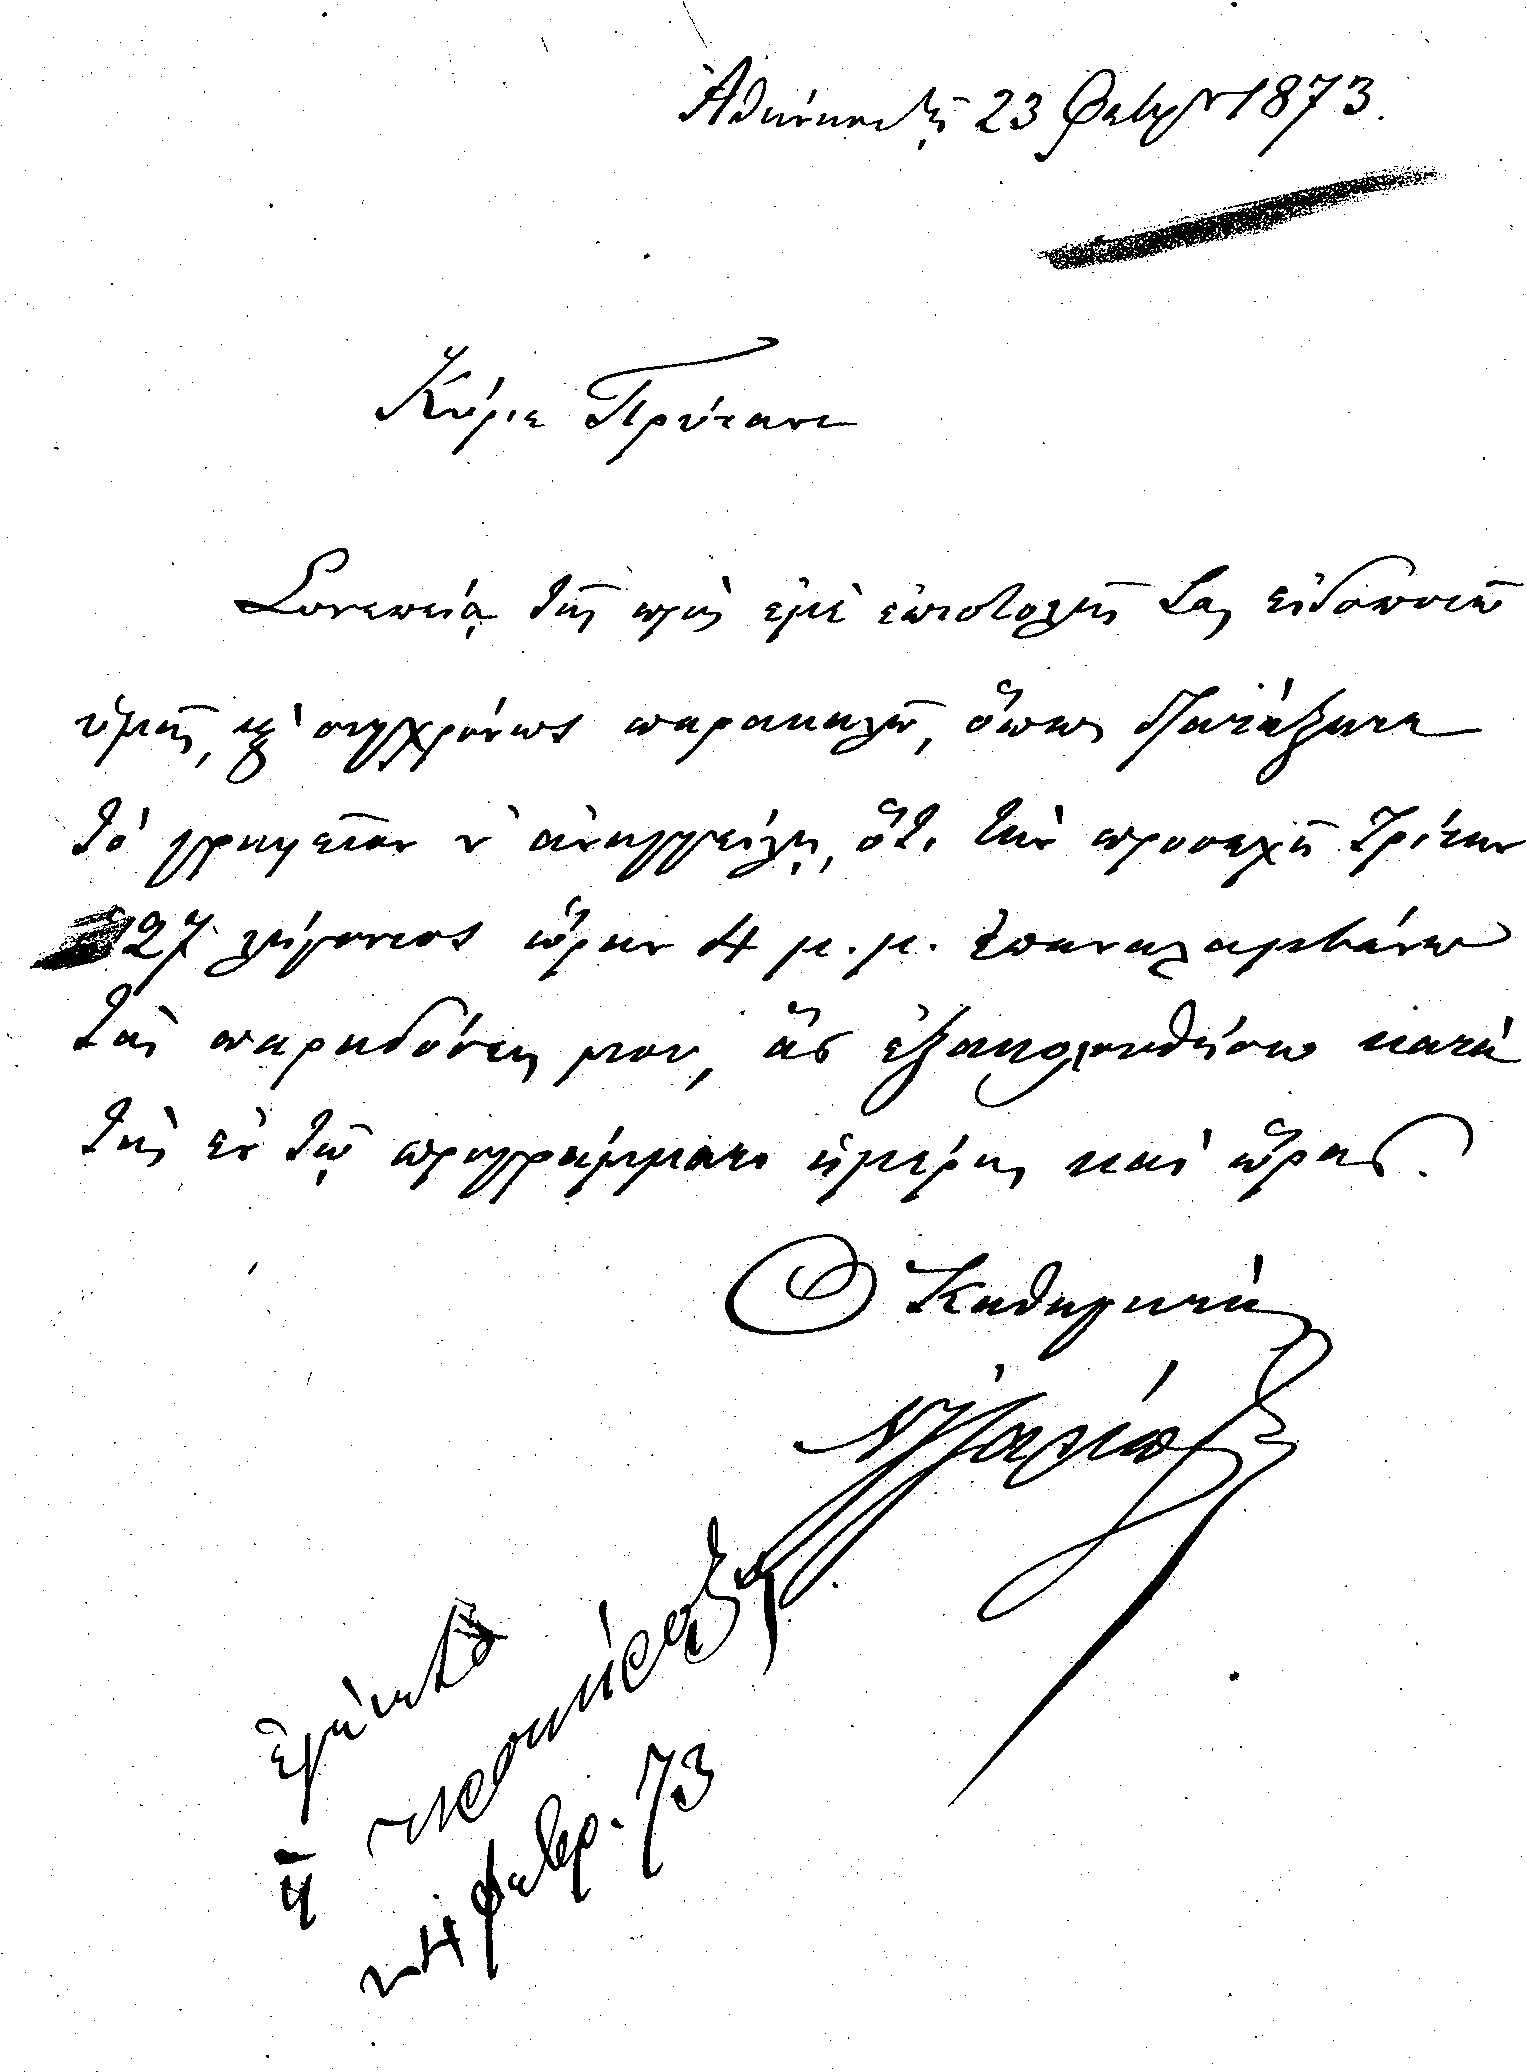 Ἀθήνησι τῇ 23 Φεβρ 1873.
Κύριε Πρύτανι
Συνεπείᾳ τῆς πρὸς ἐμὲ ἐπιστολῆς Σας εἰδοποιῶ
ὑμᾶς, καὶ συγχρόνως παρακαλῶ, ὅπως διατάξητε
τὸ γραφεῖον ν' ἀναγγείλῃ, ὅτι τὴν προσεχῆ Τρίτην
27 λήγοντος ὥραν 4 μ.μ. ἐπαναλαμβάνω
τὰς παραδόσεις μου, ἃς ἐξακολουθήσω κατὰ
τὰς ἐν τῷ προγράμματι ἡμέρας καὶ ὥρας.
Ὁ Καθηγητὴς
ἐγένετο
ἡ προκήρυξις
24 φεβρ. 73